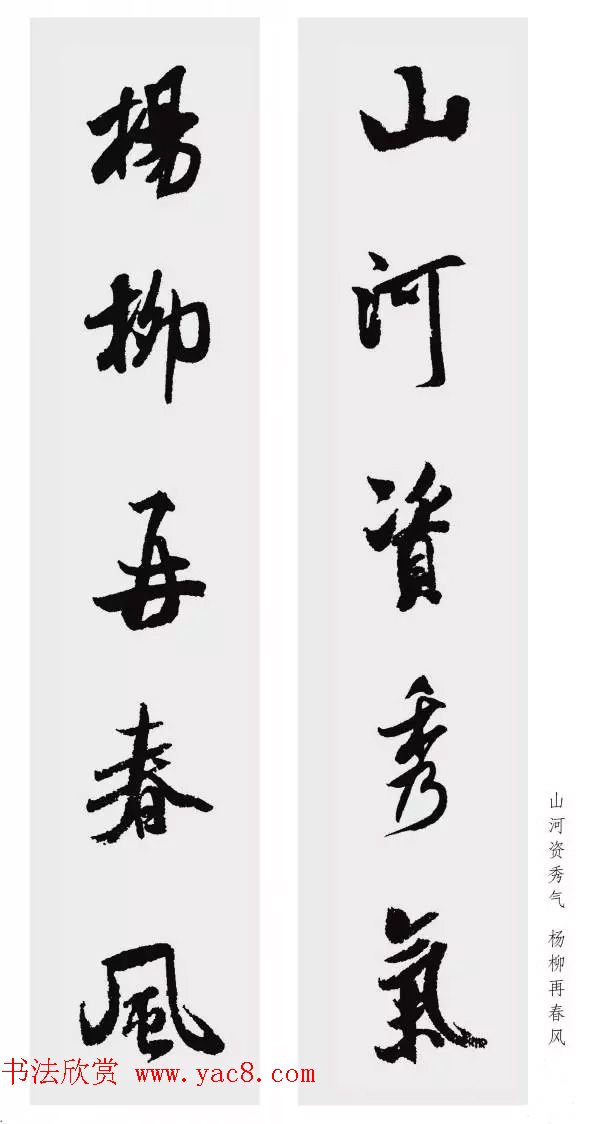 山河資秀氣
楊柳再春風
山河资秀气 杨柳再春风
书法欣赏 www.yac8.com